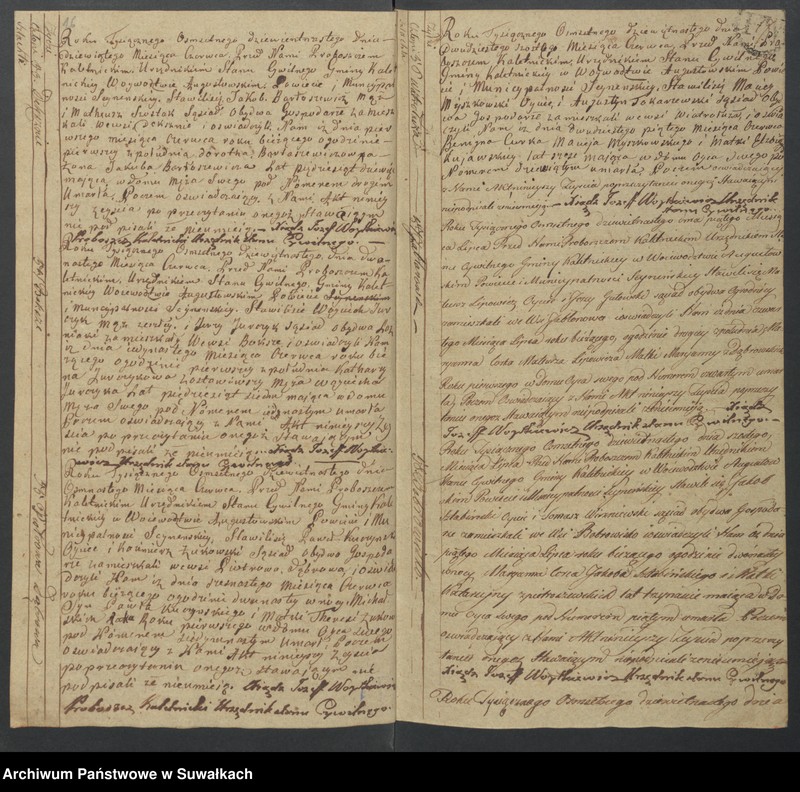 Roku Tysiącznego Osmsetnego dziewiętnastego dnia
dziewiątego Miesiąca Czerwca Przed Nami Proboszczem
Kaletnickim, Urzędnikiem Stanu Cywilnego Gminy Kalet
nickiey Woiewództwie Augustowskim Powiecie i Municypal
ności Seyneńskiey, Stawiliś Jakob Bartoszewicz Mąż
i Mateusz Szostak Sąsiad Obydwa Gospodarze zamiesz
kali wewsi i oswiadczyli Nam iz dnia pier
wszego miesiąca Czerwca roku bieżącego ogodzinie
pierwszy z południa Dorotka Bartoszewiczowa
Zona Jakuba Bartoszewicza lat pięćdziesiąt dziewięć
maiąca wdomu Męża swego pod Numerem drugim
Umarła Poczem oswiadczaiący z Nami Akt niniey
szy Zeyścia po przeczytaniu onegoż Stawaiącym
nie podpisali ze nieumieią. Xiądz Jozeff Woytkiewicz
Proboszcz Kaletnicki Urzędnik stanu Cywilnego.
Roku Tysiącznego Osmsetnego dziewiętnastego, dnia dwu
nastego Miesiąca Czerwca, Przed Nami Proboszczem Ka
letnickim, Urzędnikiem Stanu Cywilnego, Gminy Kalet
nickiey Woiewództwie Augustowskim Powiecie Seyneńskim
i Municypalności Seyneńskiey, Stawiliś Woyciech Jur
czyk Mąż zmarłey, i Jerzy Jurczyk Sąsiad obydwa
zamieszkali Wewsi Boksze i oswiadczyli Nam
iz dnia iedynastego Miesiąca Czerwca roku bie
żącego ogodzinie pierwszy z południa Katharzy
na Jurczykowa zostawiwszy Męża Woyciecha
Jurczyka lat pięćdziesiąt siedm maiąca wdomu
Męża Swego pod Numerem iednostym umarła
Poczem oswiadczaiący z Nami Akt niniejszy Zey
ścia po przeczytaniu onegoż Stawaiącym
nie podpisali ze nieumieią. Xiądz Jozeff Woytkie
wicz Urzędnik stanu Cywilnego
Roku Tysiącznego Osmsetnego Dziewiętnastego dnia
Osmnastego Miesiąca Czerwca, Przed Nami Proboszczem
Kaletnickim Urzędnikiem Stanu Cywilnego Gminy Kalet
nickiey w Woiewództwie Augustowskim Powiecie i Mu
nicypalności Seyneńskiey, Stawiliś Paweł Kuczyński
Oyciec i Kazimierz Żukowski Sąsiad obydwa Gospoda
rze zamieszkali wewsi Piotrowa Dąbrowa, i oswia
dczyli Nam iz dnia szesnastego Miesiąca Czerwca
roku bieżącego ogodzinie dwunasty wnocy Michał
Syn Pawła Kuczyńskiego i Matki Theressy Żukow
skich Roku pierwszego wdomu Oyca swego
pod Numerem siedymnastym Umarł, Poczem
oswiadczaiący z Nami Akt niniejszy Zeyścia
po przeczytaniu onegoż Stawaiącym nie
podpisali ze nieumieią. Xiądz Jozeff Woytkiewicz
Proboszcz Kaletnicki Urzędnik stanu Cywilnego.
Roku Tysiącznego Osmsetnego dziewiętnastego dnia
Dwudziestego szostego Miesiąca Czerwca, Przed Nami Pro
boszczem Kaletnickim, Urzędnikiem Stanu Cywilnego
Gminy Kaletnickiey w Woiewództwie Augustowskim Powie
cie i Municypalności Seyneńskiey, Stawiliś Maciey
Myszkowski Oyciec, i Augustyn Tokarzewski Sąsiad Oby
dwa Gospodarze zamieszkali wewsi Wiatrołuża, i oświad
czyli Nam iz dnia dwudziestego piątego Miesiąca Czerwca
Benigna Curka Macieja Myszkowskiego i Matki Elżbiety
Kujawskiey, lat sześć maiąca wdomu Oyca swego pod
Numerem dziewiątym umarła, Poczem oswiadczaiący
z Nami Akt niniejszy Zeyścia po przeczytaniu onegoż Stawaiącym
niepodpisali zenieumieią. Xiądz Jozeff Woytkiewicz Urzędnik
stanu Cywilnego.
Roku Tysiącznego Osmsetnego dziewiętnastego dnia piątego Miesią
ca Lipca Przed Nami Proboszczem Kaletnickim Urzędnikiem Sta
nu Cywilnego Gminy Kaletnickiey w Woiewództwie Augustow
skim Powiecie i Municypalności Seyneńskiey Stawiliś Ma
teusz Lipowicz Oyciec i Jerzy sąsiad obydwa Ogrodnicy
zamieszkali we Wsi Jabłonowo oswiadczyli Nam iz dnia czwar
tego Miesiąca Lipca roku bieżącego, ogodzinie drugiey z południa Ma
ryanna Corka Mateusza Lipowicza Matki Maryanny z Dąbrowskich
Roku pierwszego w Domu Oyca swego pod Numerem czwartym umar
ła, Poczem Oswiadczaiący z Nami Akt niniejszy Zeyścia poprzeczy
taniu onegoż Stawaiącym niepodpisali zenieumieią. Xiądz
Jozeff Woytkiewicz Urzędnik stanu Cywilnego.
Roku Tysiącznego Osmsetnego dziewiętnastego dnia szostego
Miesiąca Lipca Przed Nami Proboszczem Kaletnickim Urzędnikiem
Stanu Cywilnego Gminy Kaletnickiey w Woiewództwie Augustow
skim Powiecie i Municypalności Seyneńskiey Stawili się Jakob
Oyciec i Tomasz Wiszniewski sąsiad obydwa Gospoda
rze zamieszkali we Wsi oswiadczyli Nam iz dnia
piątego Miesiąca Lipca roku bieżącego ogodzinie dwunastey
wnocy Maryanna Corka Jakoba i Matki
Katarzyny lat trzynaście maiąca w Do
mu Oyca swego pod Numerem piątym umarła. Poczem
oswiadczaiący z Nami Akt niniejszy Zeyścia po przeczy
taniu onegoż Stawaiącym niepodpisali zenieumieią
Xiądz Jozeff Woytkiewicz Urzędnik stanu Cywilnego
Roku Tysiącznego Osmsetnego dziewiętnastego dnia
Archiwum Państwowe w Suwałkach